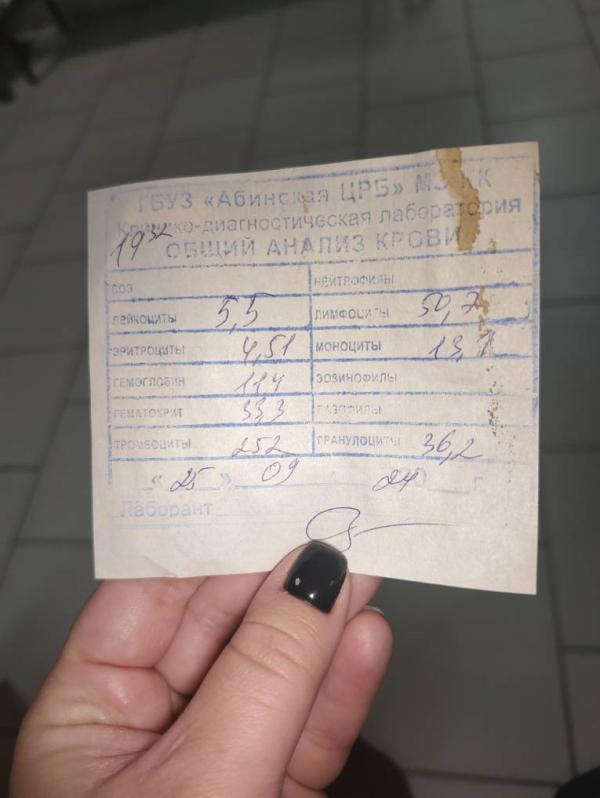 ГБУЗ «Абинская ЦРБ» МЗ КК
Клинико-диагностическая лаборатория
19 32 ОБЩИЙ АНАЛИЗ КРОВИ
СОЭ НЕЙТРОФИЛЫ
ЛЕЙКОЦИТЫ 5,5 ЛИМФОЦИТЫ 50,7
ЭРИТРОЦИТЫ 4,51 МОНОЦИТЫ 13,1
ГЕМОГЛОБИН 114 ЭОЗИНОФИЛЫ
ГЕМАТОКРИТ 33,3 БАЗОФИЛЫ
ТРОМБОЦИТЫ 252 ГРАНУЛОЦИТЫ 36,2
«25» 09 24 г.
Лаборант